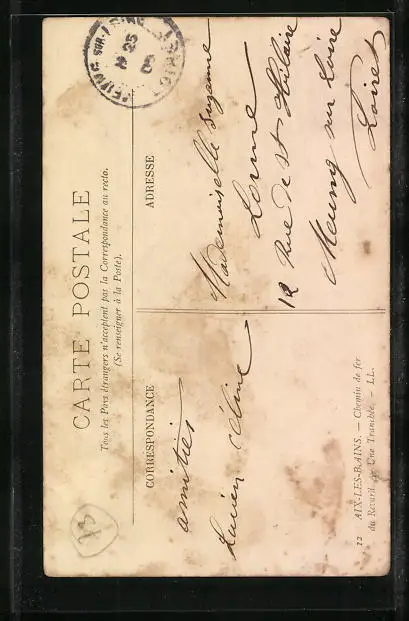 CARTE POSTALE
Tous les Pays étrangers n'acceptent pas la Correspondance au recto.
(Se renseigner à la Poste).
CORRESPONDANCE
ADRESSE
amitiés
Lucien Céline
Mademoiselle Suzanne
Lorme
12 Rue de St Hilaire
Meung sur Loire
Loiret
12 AIX-LES-BAINS. — Chemin de fer
du Revard. — Une Tranchée. — LL.
MEUNG-SUR-LOIRE
25
05
LOIRET
73